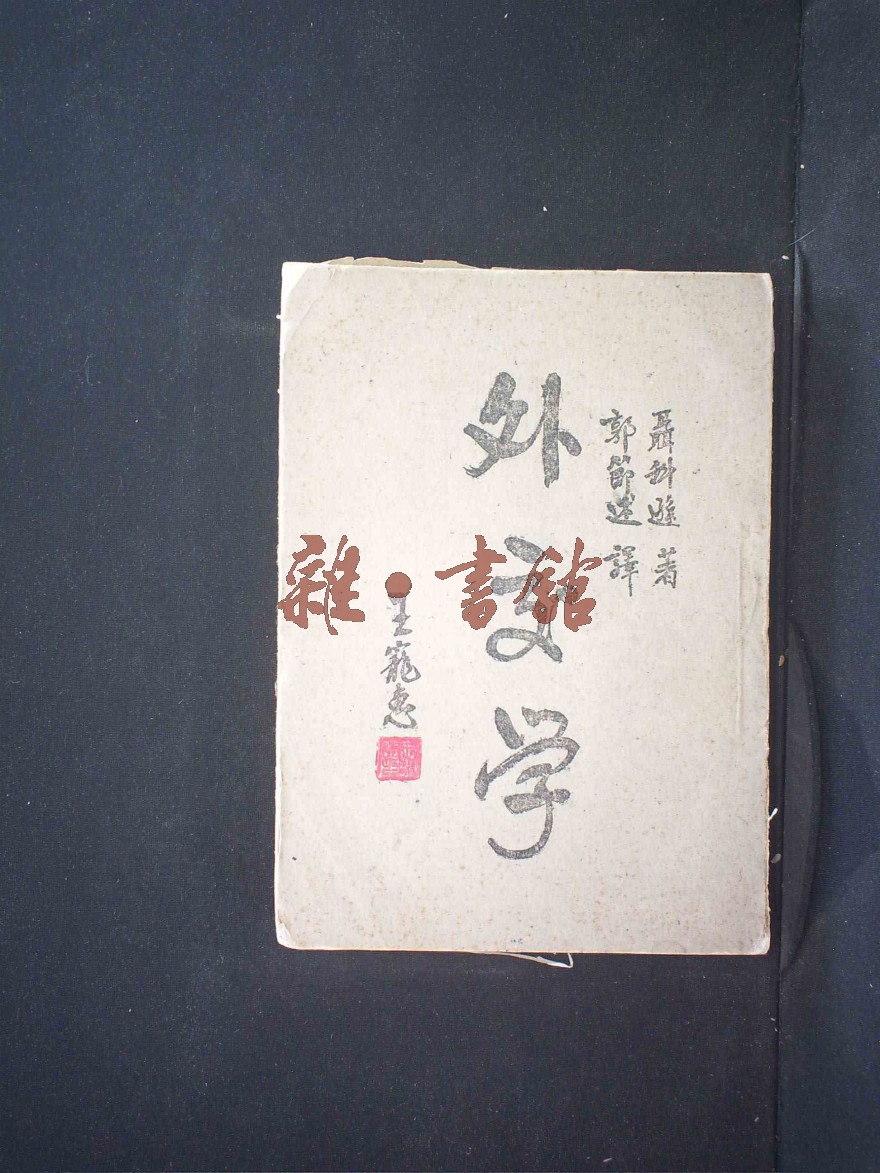 聶科遜 著
郭節述 譯
外交学
王寵惠
雜·書館